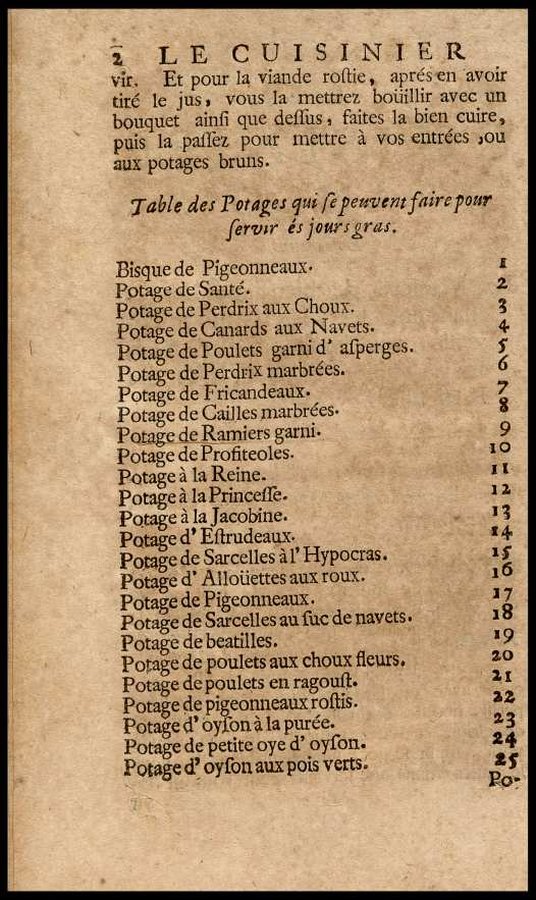 2 LE CUISINIER
vir. Et pour la viande roſtie, aprés en avoir
tiré le jus, vous la mettrez boüillir avec un
bouquet ainſi que deſſus, faites la bien cuire,
puis la paſſez pour mettre à vos entrées ,ou
aux potages bruns.
Table des Potages qui ſe peuvent faire pour
ſervir és jours gras.
Bisque de Pigeonneaux. 1
Potage de Santé. 2
Potage de Perdrix aux Choux. 3
Potage de Canards aux Navets. 4
Potage de Poulets garni d' aſperges. 5
Potage de Perdrix marbrées. 6
Potage de Fricandeaux. 7
Potage de Cailles marbrées. 8
Potage de Ramiers garni. 9
Potage de Profiteoles. 10
Potage à la Reine. 11
Potage à la Princeſſe. 12
Potage à la Jacobine. 13
Potage d' Eſtrudeaux. 14
Potage de Sarcelles à l' Hypocras. 15
Potage d' Alloüettes aux roux. 16
Potage de Pigeonneaux. 17
Potage de Sarcelles au ſuc de navets. 18
Potage de beatilles. 19
Potage de poulets aux choux fleurs. 20
Potage de poulets en ragouſt. 21
Potage de pigeonneaux roſtis. 22
Potage d' oyſon à la purée. 23
Potage de petite oye d' oyſon. 24
Potage d' oyſon aux pois verts. 25
Po-